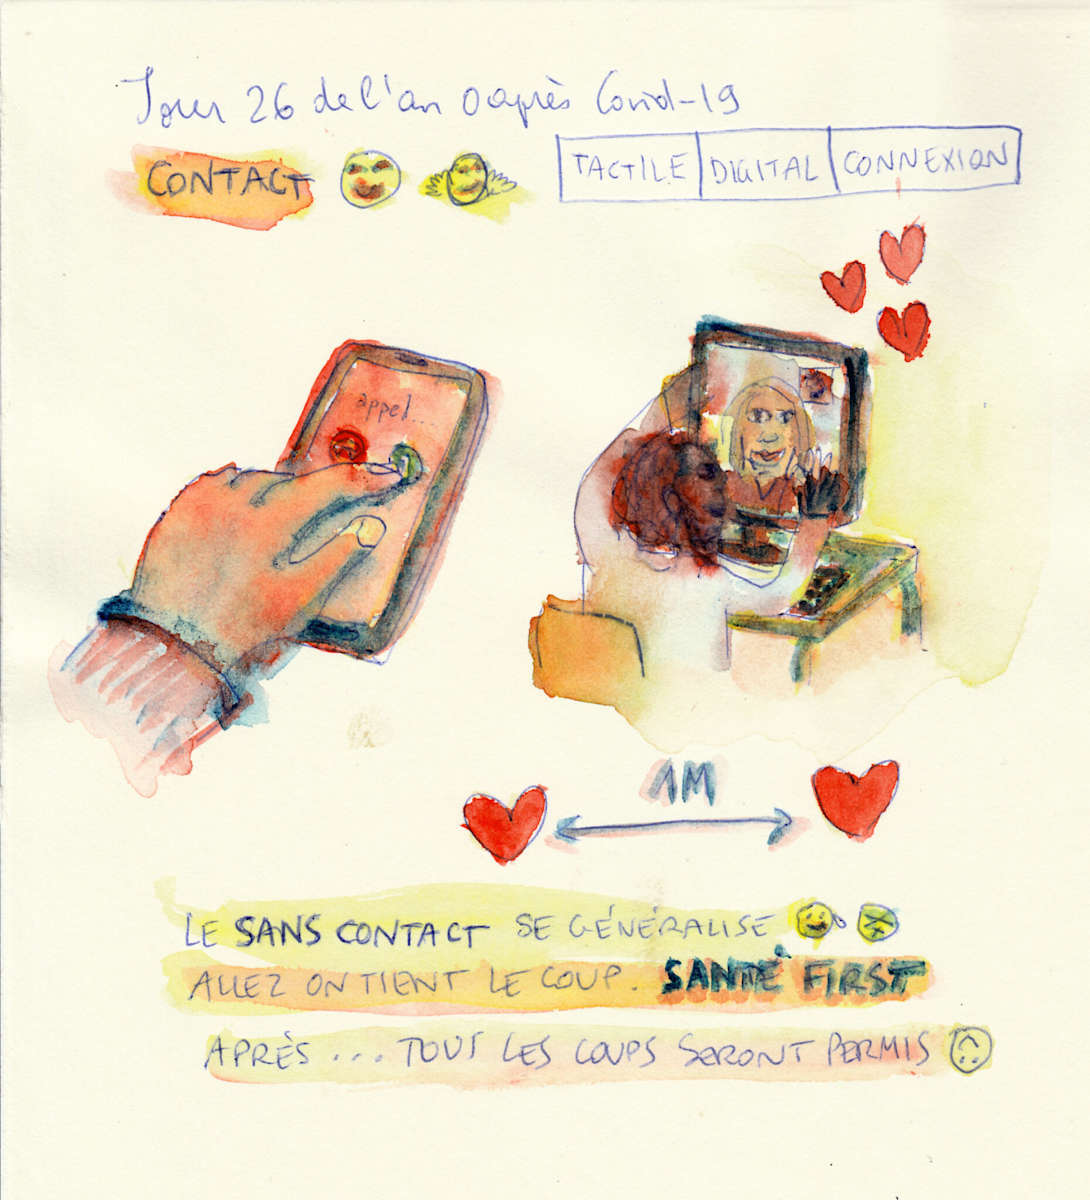 Jour 26 de l'an 0 après Covid-19
CONTACT
TACTILE DIGITAL CONNEXION
appel...
1M
LE SANS CONTACT SE GÉNÉRALISE
ALLEZ ON TIENT LE COUP. SANTÉ FIRST
APRÈS ... TOUS LES COUPS SERONT PERMIS